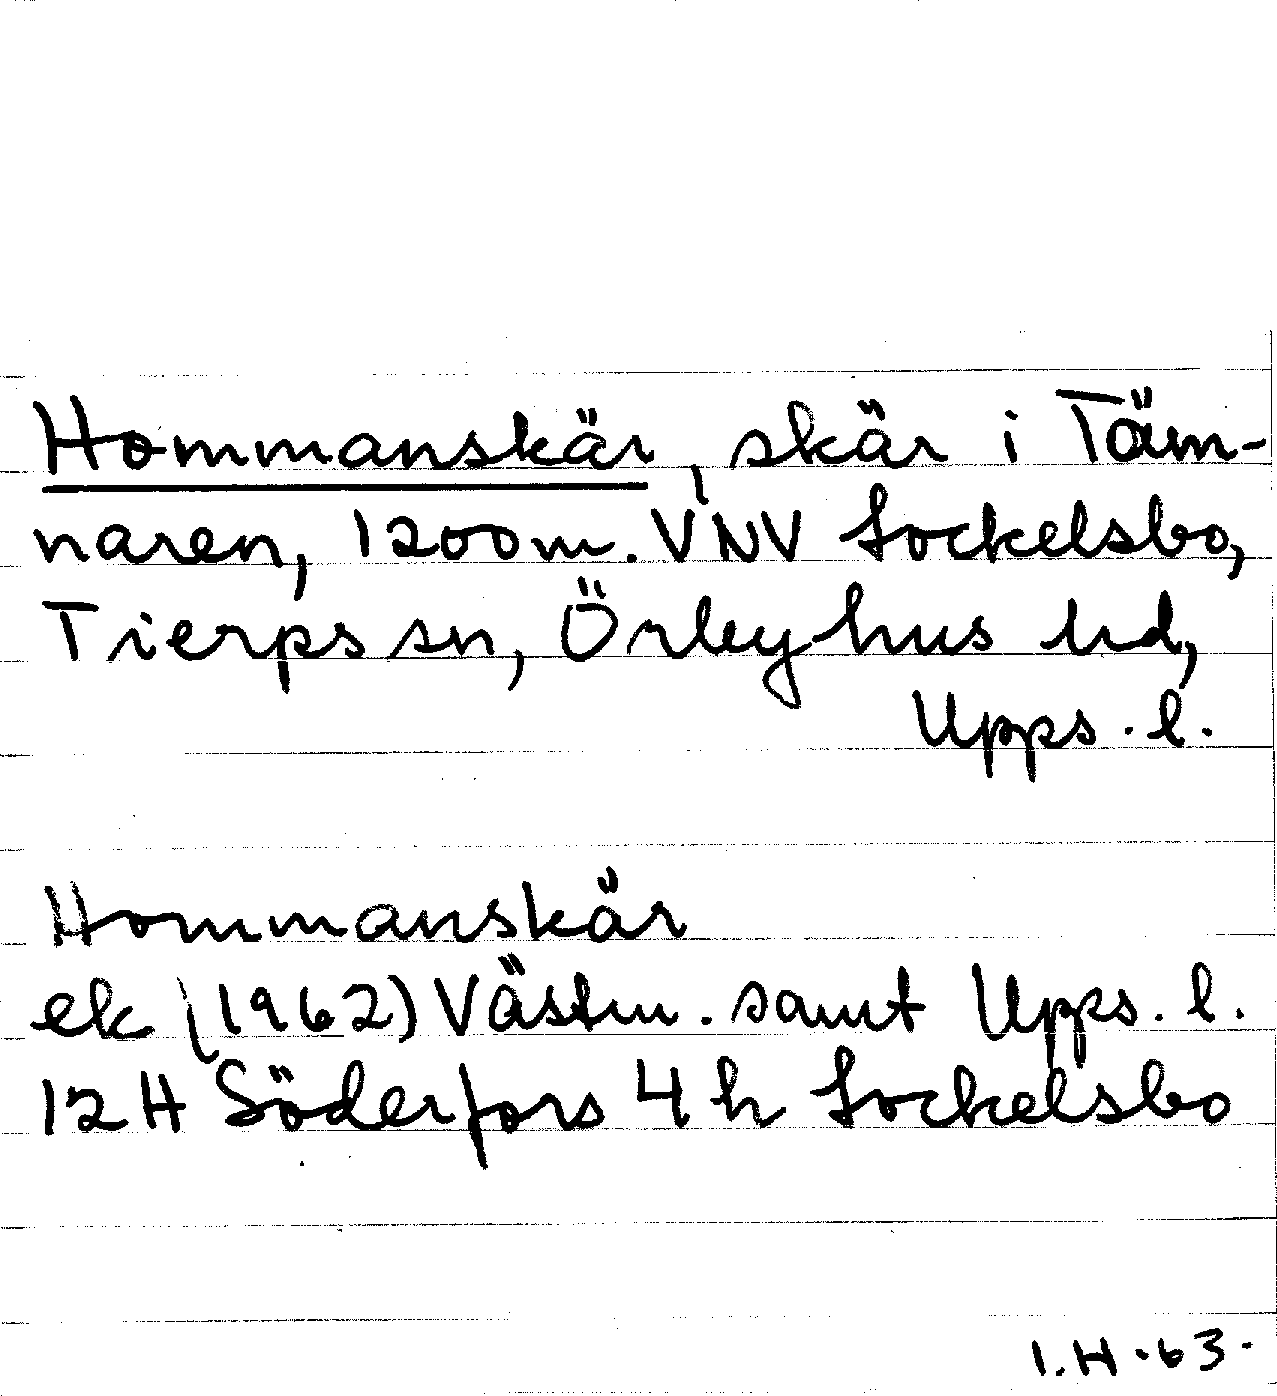 Hommanskär, skär i Täm-
naren, 1200 m. VNV Sockelsbo,
Tierps sn, Örbyhus hd,
Upps. l.
Hommanskär
ek (1962) Västm. samt Upps. l.
12 H Söderfors 4 h Sockelsbo
I.H.63.